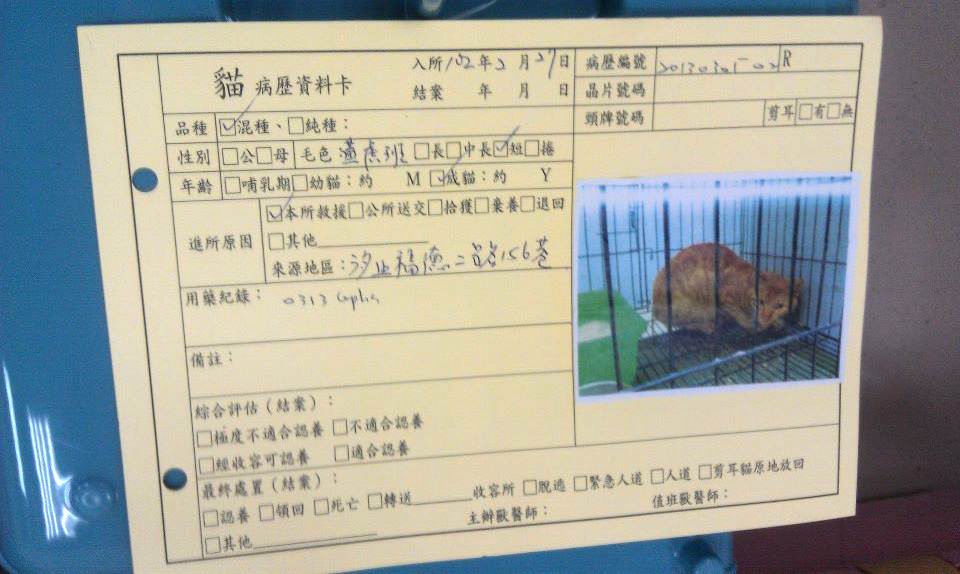 貓 病歷資料卡 入所102年2月27日
結案 年 月 日
病歷編號 20130305-02 R
晶片號碼
頸牌號碼 剪耳 □有□無
品種 ☑混種、□純種：
性別 □公□母 毛色 黃虎斑 □長□中長☑短□捲
年齡 □哺乳期□幼貓：約 M ☑成貓：約 Y
進所原因 ☑本所救援□公所送交□拾獲□棄養□退回
□其他
來源地區：汐止福德二路156巷
用藥紀錄： 0313
備註：
綜合評估（結案）：
□極度不適合認養 □不適合認養
□經收容可認養 □適合認養
最終處置（結案）：
□認養 □領回 □死亡 □轉送______收容所 □脫逃 □緊急人道 □人道 □剪耳貓原地放回
□其他
主辦獸醫師： 值班獸醫師：